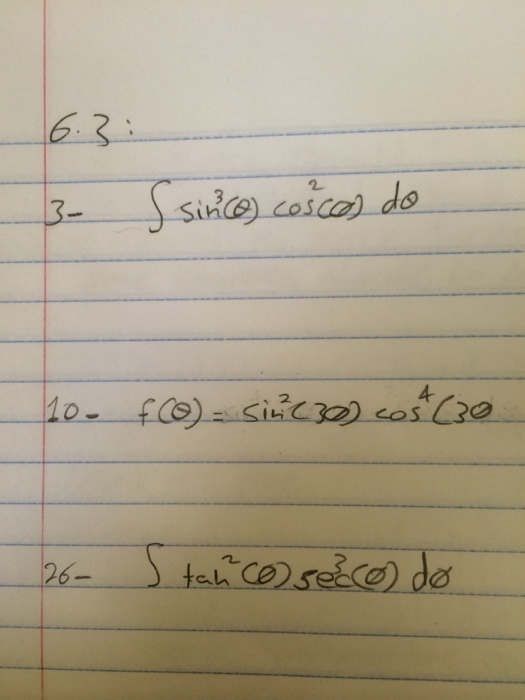 6.3:
3- ∫ sin³(θ) cos²(θ) dθ
10- f(θ) = sin²(3θ) cos⁴(3θ
26- ∫ tan²(θ) sec³(θ) dθ